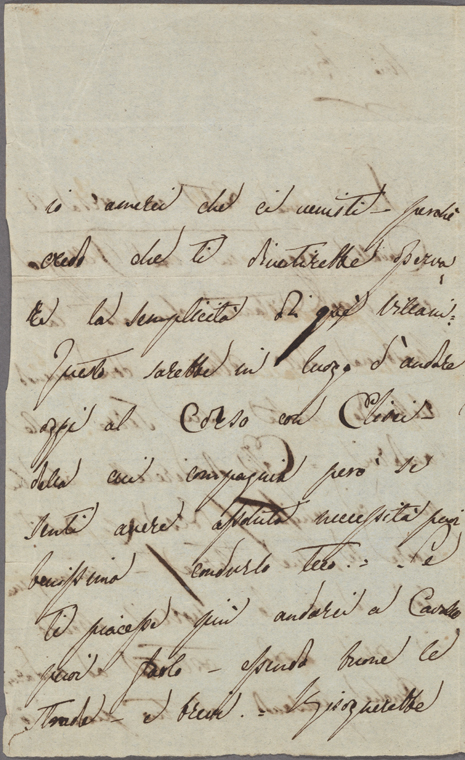 io amerei che ci venisti – perchè
credo che ti divertirebbe osserva
re la semplicità di que' Villani:
Questo sarebbe in luogo d'andare
oggi al Corso con
della cui compagnia però se
senti avere assoluta necessità puoi
benissimo condurlo teco. – e
ti piacesse più andarci a Cavallo
puoi farlo – essendo buone le
strade – e brevi. – Bisognerebbe